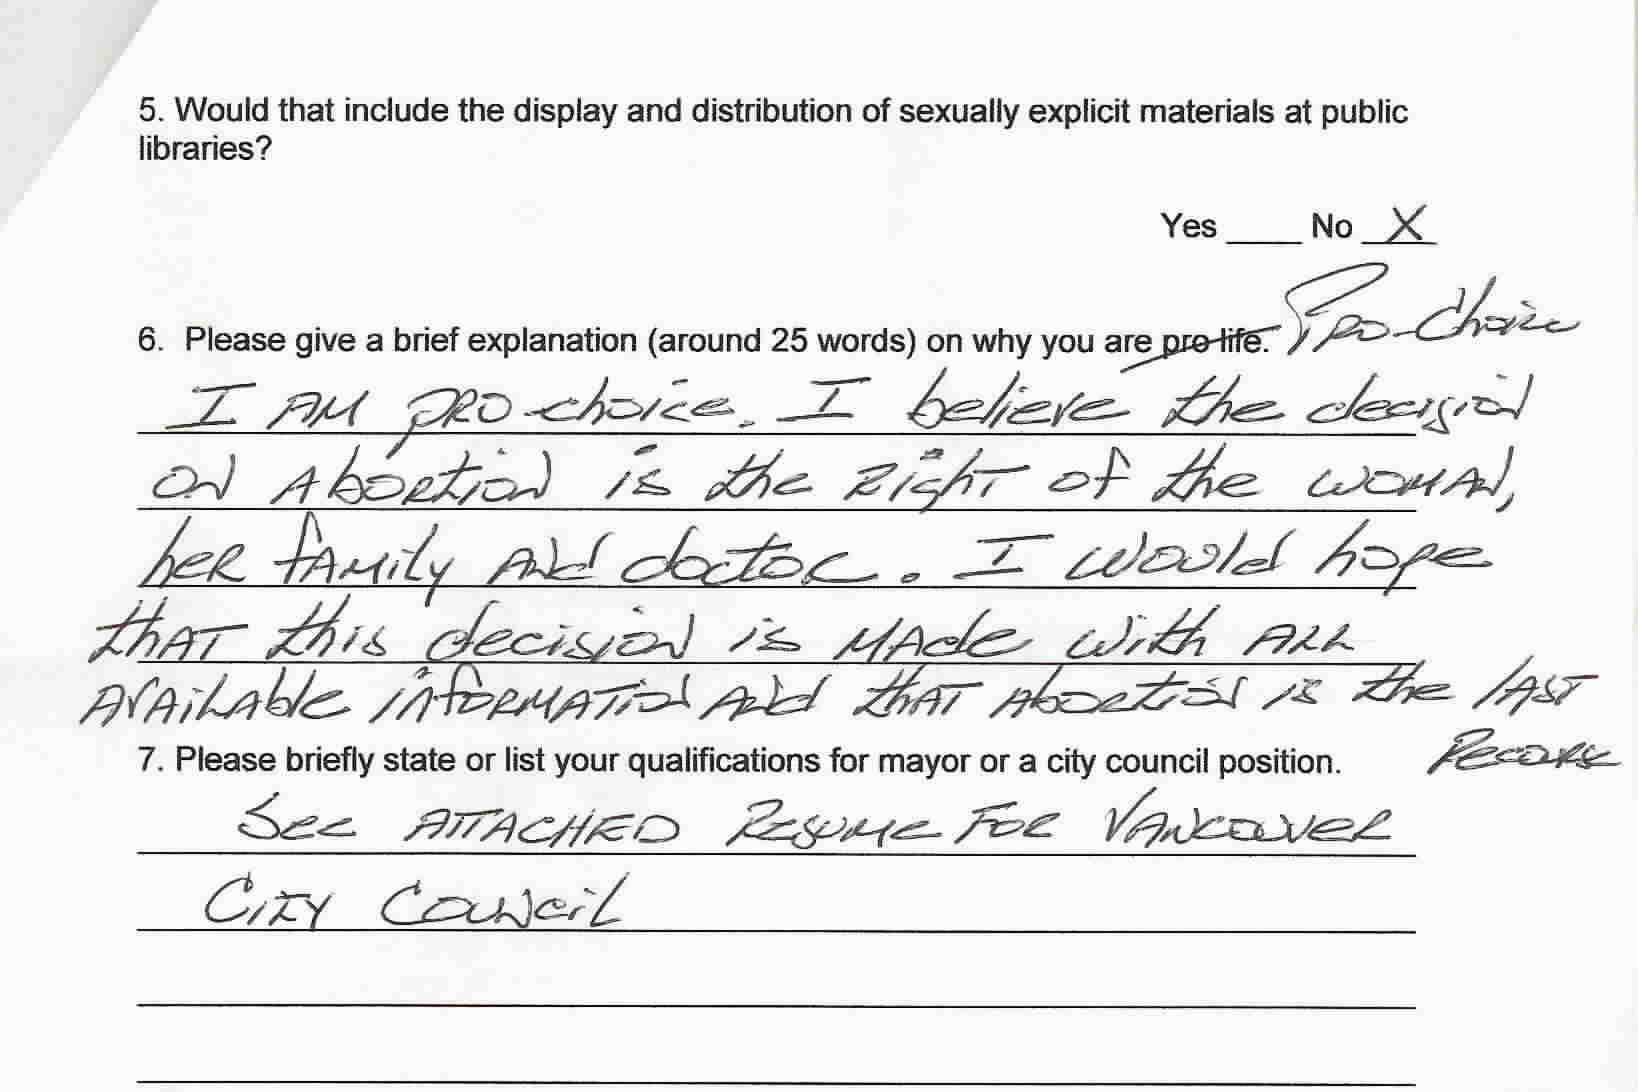 5. Would that include the display and distribution of sexually explicit materials at public
libraries?
Yes ____ No X
6. Please give a brief explanation (around 25 words) on why you are pro life. Pro-Choice
I AM PRO-choice. I believe the decision
on Abortion is the Right of the woman,
her family and doctor. I would hope
that this decision is made with all
available information and that abortion is the last
7. Please briefly state or list your qualifications for mayor or a city council position.
See ATTACHED Resume For Vancouver
City Council